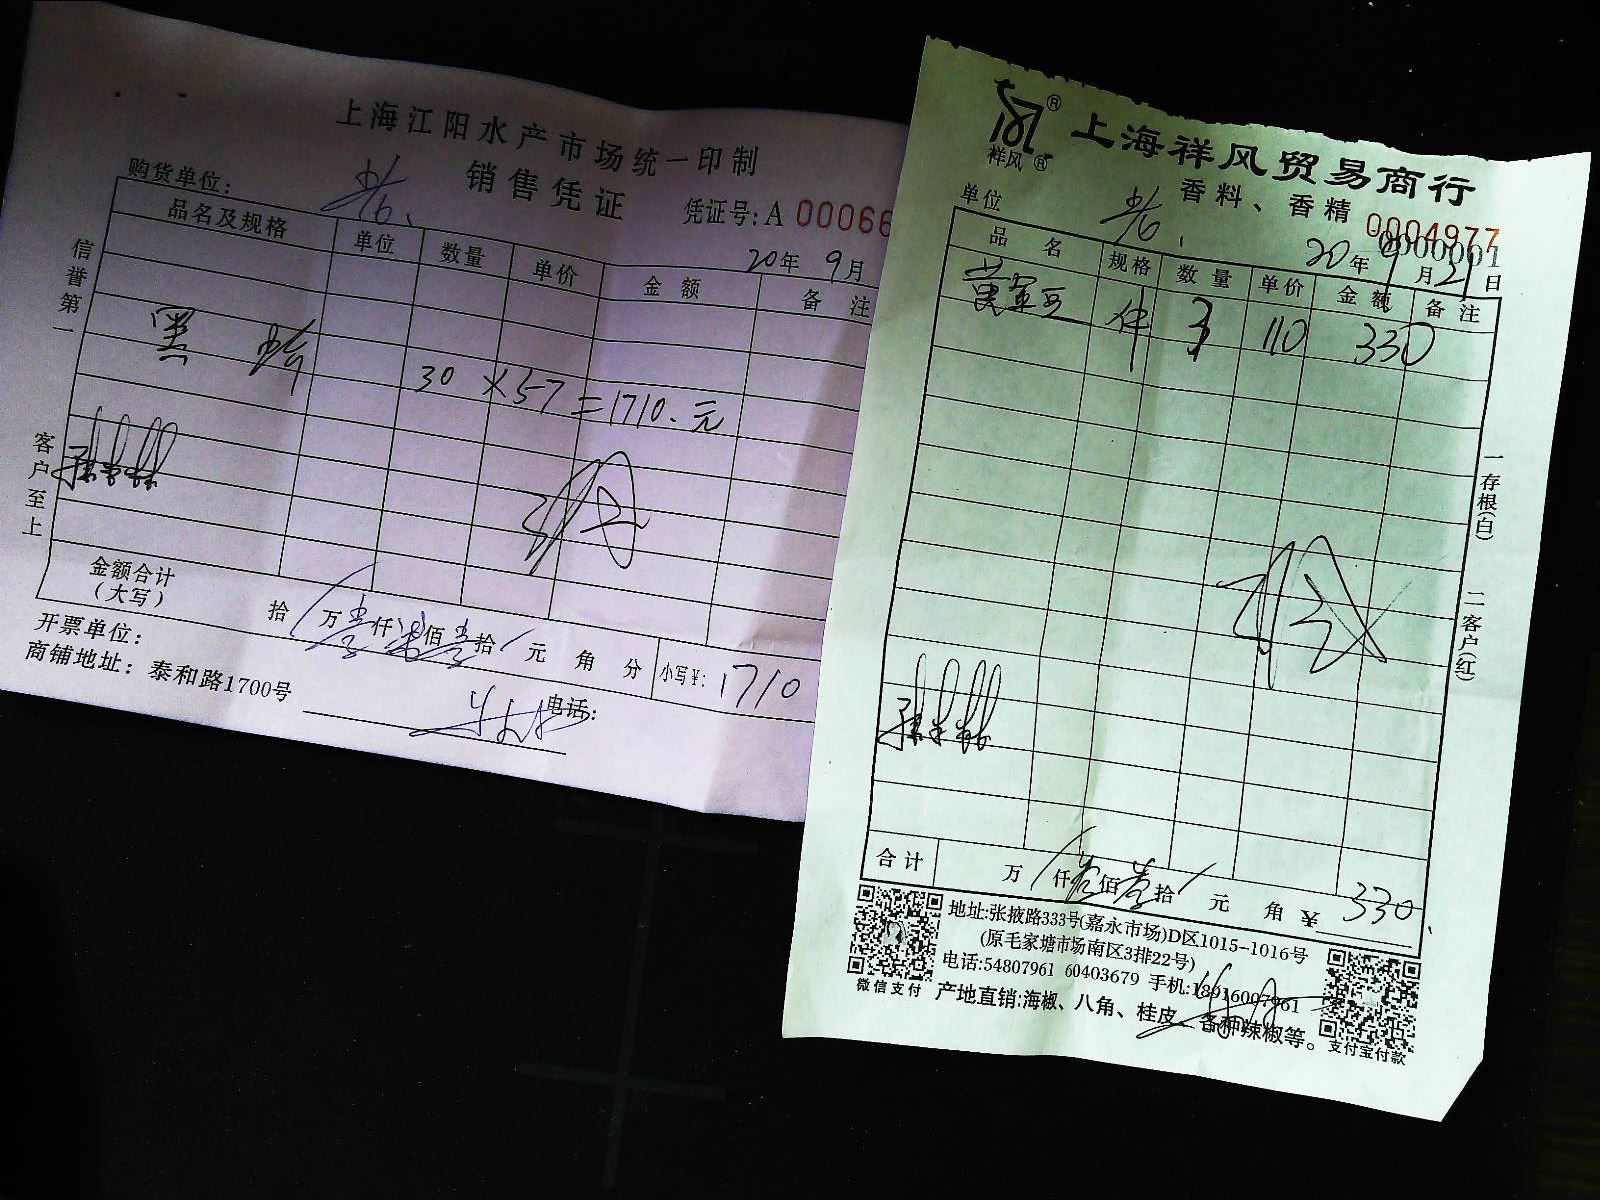 上海江阳水产市场统一印制
销售凭证
购货单位：
凭证号：A 00066
20年 9月
品名及规格 单位 数量 单价 金额 备注
信誉第一
客户至上
黑
30 × 57 = 1710.元
金额合计
（大写）
拾 万 壹 仟 柒 佰 壹 拾 元 角 分 小写¥: 1710
开票单位：
商铺地址：泰和路1700号
电话：
祥风
上海祥风贸易商行
香料、香精
单位
0004977
0000001
20年 9月 21日
品名 规格 数量 单价 金额 备注
件 3 110 330
一存根(白)
二客户(红)
合计 万 仟 叁 佰 叁 拾 元 角 ¥ 330
地址:张掖路333号(嘉永市场)D区1015-1016号
(原毛家塘市场南区3排22号)
电话:54807961 60403679 手机:18916007961
产地直销:海椒、八角、桂皮、各种辣椒等。
微信支付
支付宝付款